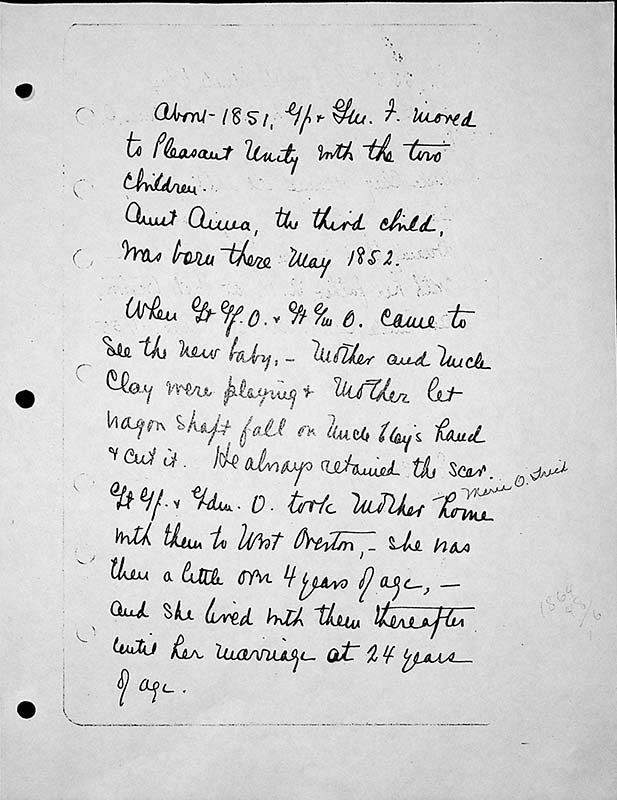 About 1851, Gp & Gm. F. moved
to Pleasant Unity with the two
children.
Aunt Anna, the third child,
was born there May 1852.
When Gt Gf. O. & Gt Gm O. came to
see the new baby, – Mother and Uncle
Clay were playing & Mother let
wagon shaft fall on Uncle Clay's hand
& cut it. He always retained the scar.
Gt Gf. & Gdm. O. took Mother home
Marie O. Frick
with them to West Overton, – she was
then a little over 4 years of age, –
and she lived with them thereafter
until her marriage at 24 years
of age.